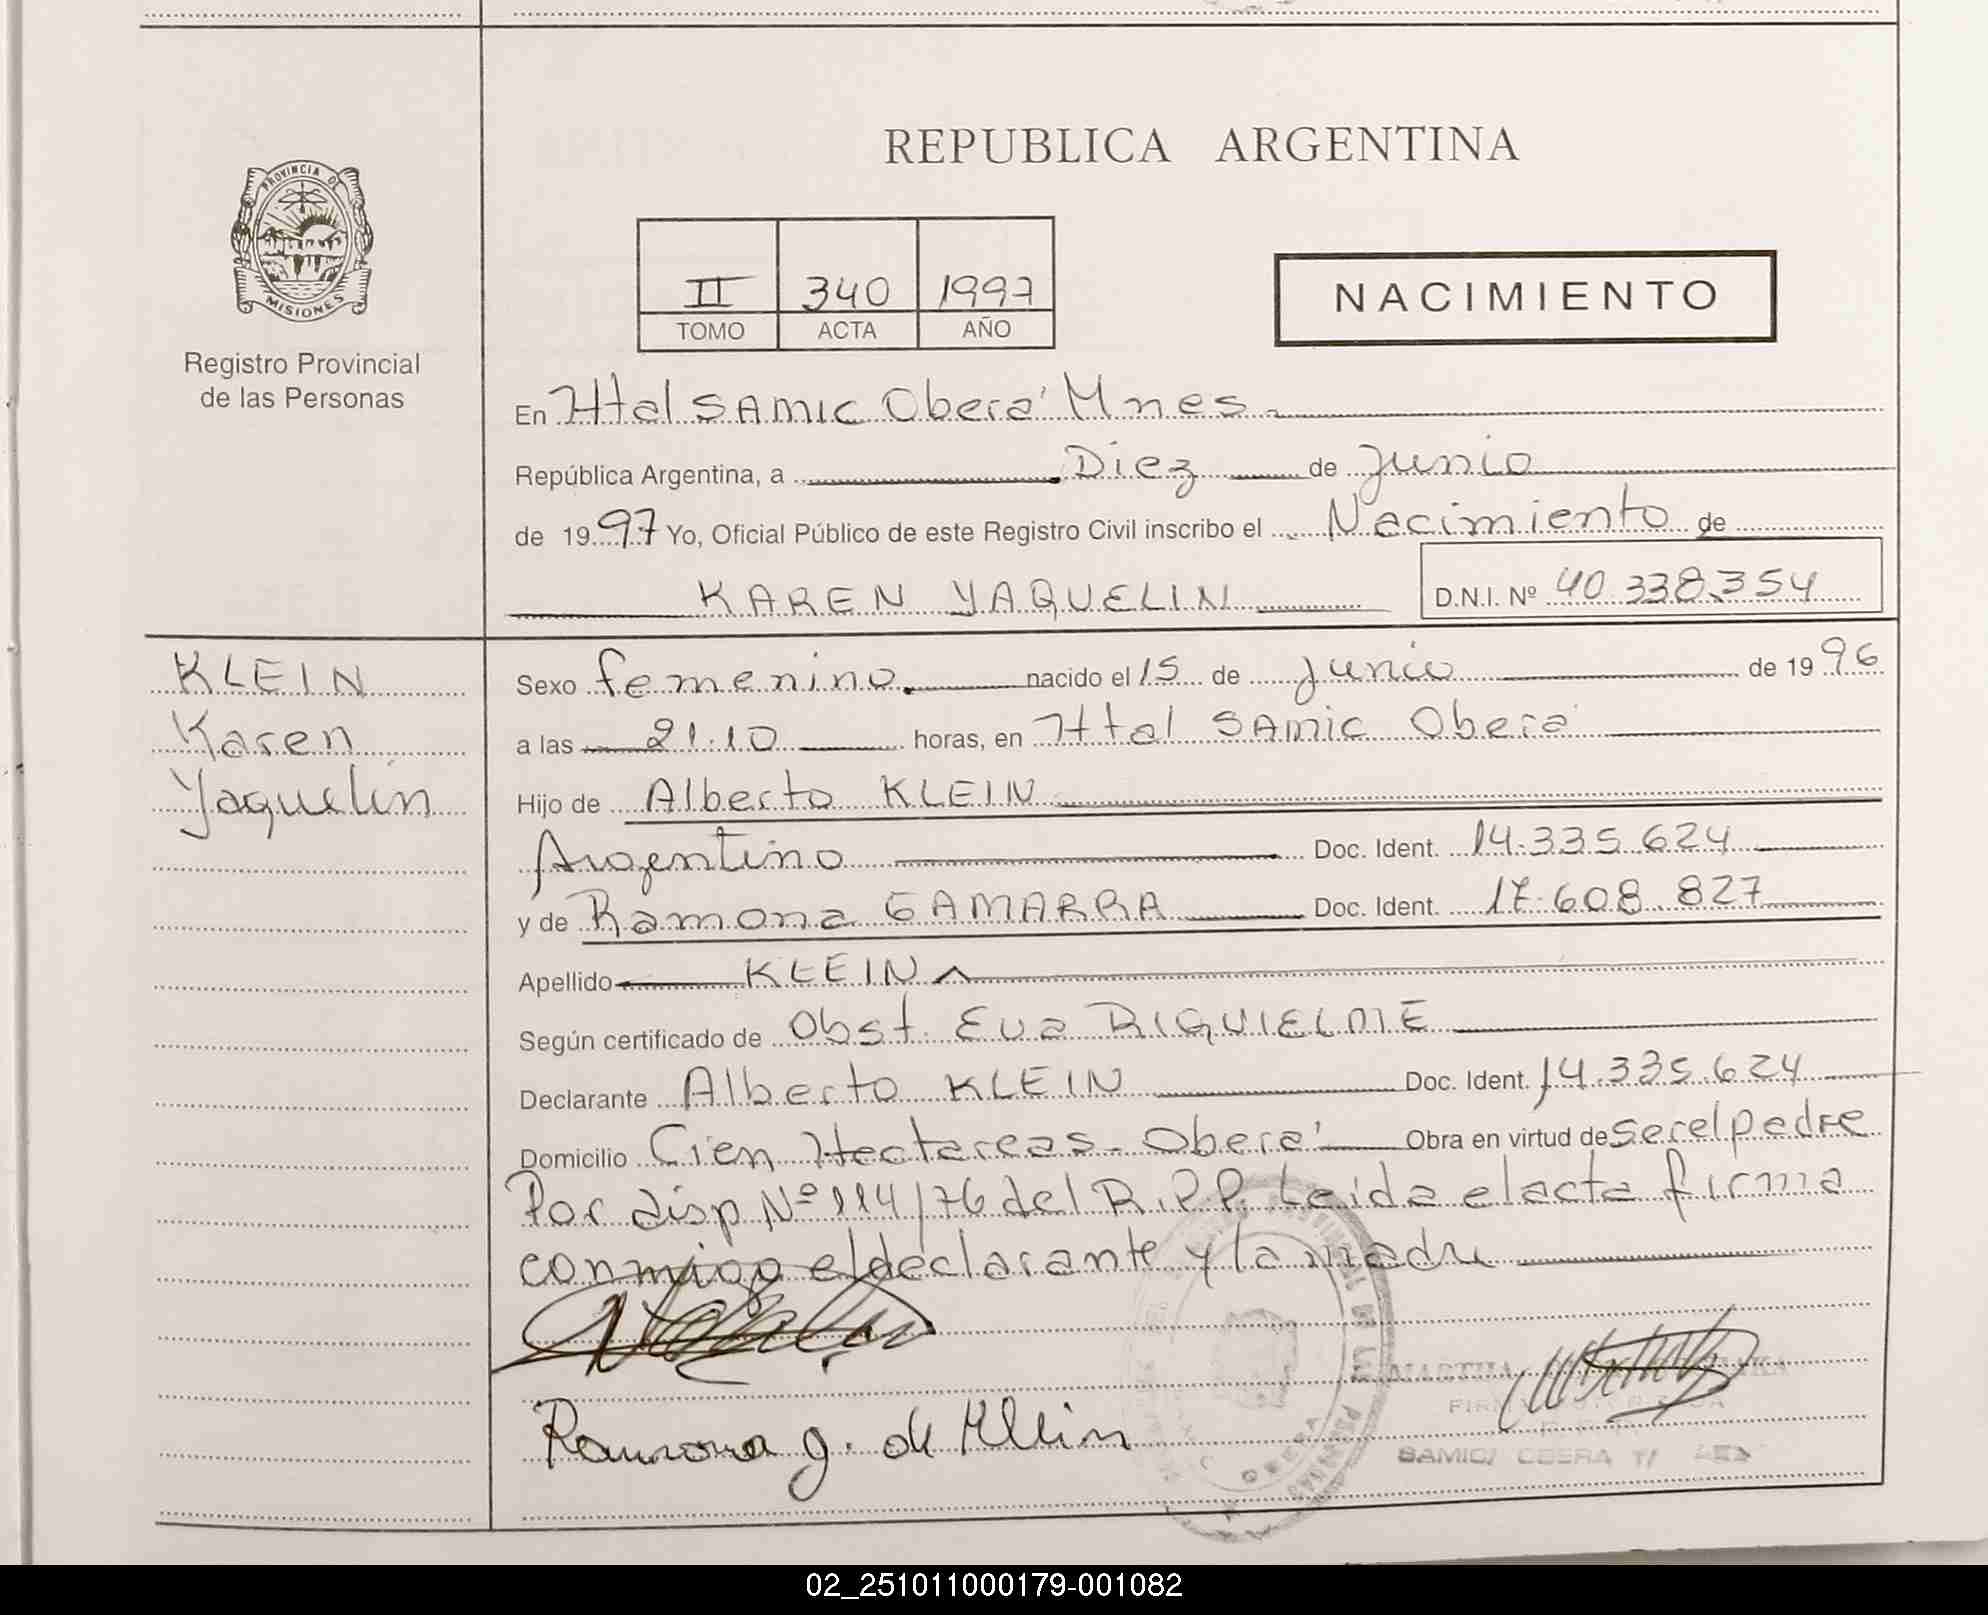 REPUBLICA ARGENTINA
PROVINCIA DE
MISIONES
Registro Provincial
de las Personas
II 340 1997
TOMO ACTA AÑO
NACIMIENTO
En Htal SAMIC Oberá Mnes.
República Argentina, a Diez de Junio
de 1997 Yo, Oficial Público de este Registro Civil inscribo el Nacimiento de
KAREN YAQUELIN D.N.I. Nº 40.338.354
KLEIN
Karen
Yaquelin
Sexo femenino. nacido el 15 de Junio de 1996
a las 21.10 horas, en Htal SAMIC Oberá
Hijo de Alberto KLEIN
Argentino Doc. Ident. 14.335.624
y de Ramona GAMARRA Doc. Ident. 17.608.827
Apellido KLEIN
Según certificado de Obst. Eva RIQUIELME
Declarante Alberto KLEIN Doc. Ident. 14.335.624
Domicilio Cien Hectareas - Oberá Obra en virtud de ser el padre
Por disp Nº 114/76 del R.P.P. Leida el acta firma
conmigo el declarante y la madre
Ramona G. de Klein
MARTHA
SAMIC OBERA
02_251011000179-001082